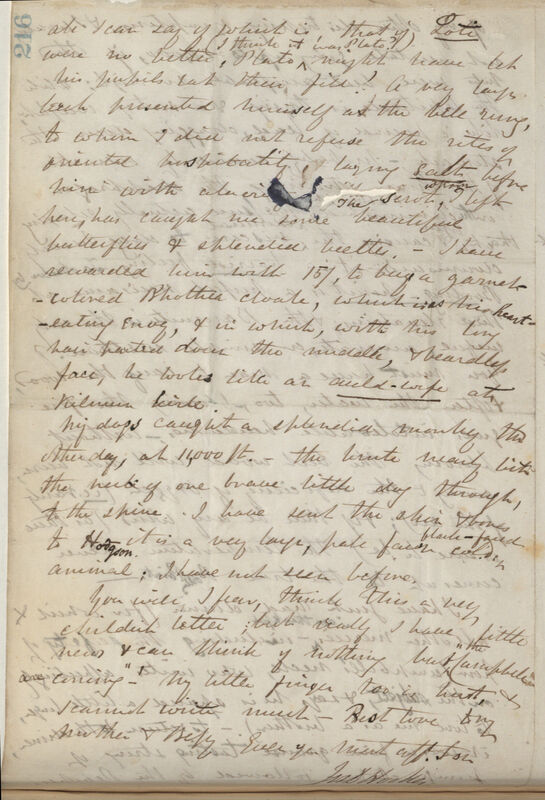 216
ate I can say of which is that if Loti
were no better, (I think it was Plato!)
Plato might have let
his pupils eat their fill! A very large
Leech presented himself at the Bell ring,
to whom I did not refuse the rites of
oriental hospitality, laying salt before
him with The Seroh, left
here, has caught me some beautiful
butterflies & splendid beetles. – I have
rewarded him with 15/, to buy a garnet
-colored Bhothea cloak, which is his heart-
-eating envy, & in which, with his long
hair parted down the middle, & beardless
face, he looks like an auld-wife at
Kilmun kirk.
My dogs caught a splendid monkey the
other day, at 11,000 ft. – the brute nearly bit
the neck of one brave little dog through,
to the spine. I have sent the skin & bones
to Hodgson. it is a very large, pale black-faced
animal, I have not seen before.
You will, I fear, think this a very
childish letter; but really I have little
news & can think of nothing but "the Campbells
are coming"! My little finger too is hurt, &
I cannot write much – Best love to my
Mother & Bessy Ever your most aff. Son
Jos D Hooker